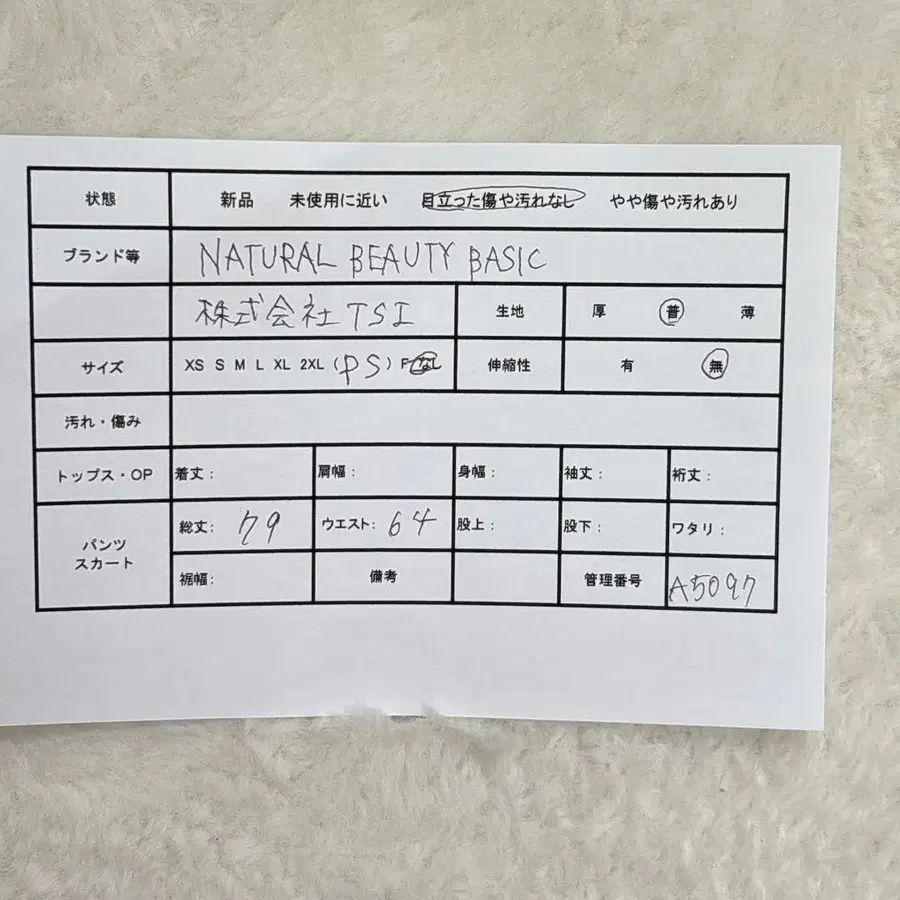 状態 新品 未使用に近い 目立った傷や汚れなし やや傷や汚れあり
ブランド等 NATURAL BEAUTY BASIC
株式会社TSI 生地 厚 普 薄
サイズ XS S M L XL 2XL (PS) F なし 伸縮性 有 無
汚れ・傷み
トップス・OP 着丈: 肩幅: 身幅: 袖丈: 裄丈:
パンツ スカート 総丈: 79 ウエスト: 64 股上: 股下: ワタリ:
裾幅: 備考 管理番号 A5097